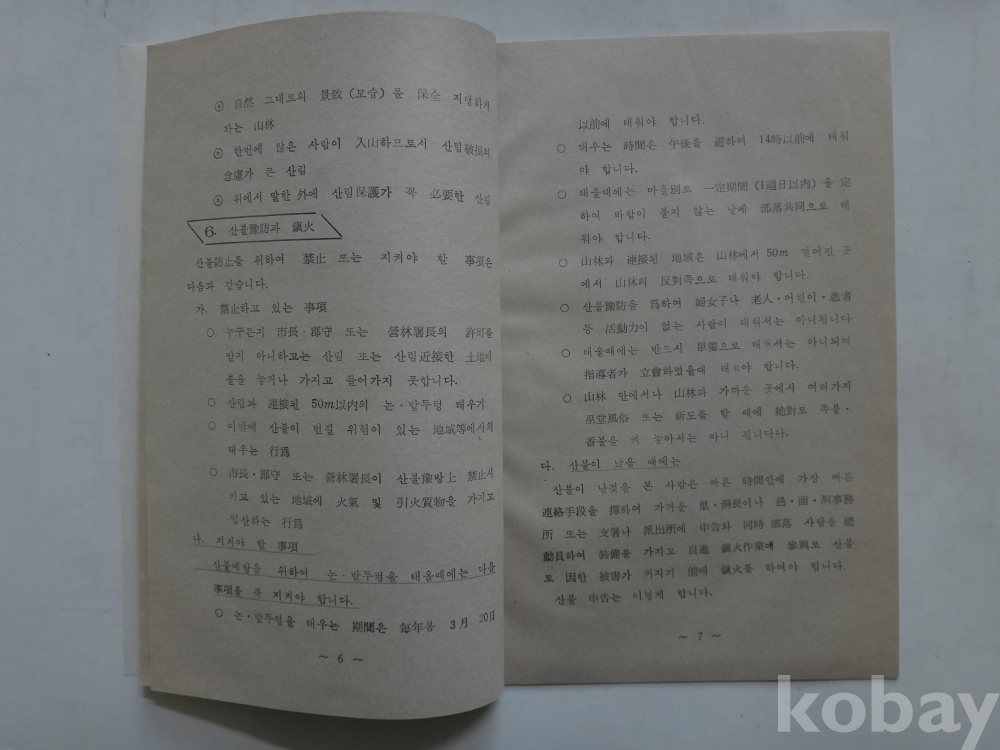 ◎ 自然 그대로의 景致(모습)를 保全 지탱하게
하는 山林
◎ 한번에 많은 사람이 入山하므로서 산림破損의
念慮가 큰 산림
◎ 위에서 말한 外에 산림保護가 꼭 必要한 산림
6. 산불豫防과 鎭火
산불防止를 위하여 禁止 또는 지켜야 할 事項은
다음과 같습니다.
가. 禁止하고 있는 事項
○ 누구든지 市長·郡守 또는 營林署長의 許可를
받지 아니하고는 산림 또는 산림近接한 土地에
불을 놓거나 가지고 들어가지 못합니다.
○ 산림과 連接된 50m以內의 논·밭두렁 태우기
○ 이밖에 산불이 번질 위험이 있는 地域等에서의
태우는 行爲
○ 市長·郡守 또는 營林署長이 산불豫防上 禁止시
키고 있는 地域에 火氣 및 引火質物을 가지고
입산하는 行爲
나. 지켜야 할 事項
산불예방을 위하여 논·밭두렁을 태울때에는 다음
事項을 꼭 지켜야 합니다.
○ 논·밭두렁을 태우는 期間은 毎年봄 3月 20日
~ 6 ~
以前에 태워야 합니다.
○ 태우는 時間은 午後을 避하여 14時以前에 태워
야 합니다.
○ 태울때에는 마을別로 一定期間(1週日以內)을 定
하여 바람이 불지 않는 날에 部落共同으로 태
워야 합니다.
○ 山林과 連接된 地域은 山林에서 50m 떨어진 곳
에서 山林의 反對쪽으로 태워야 합니다.
○ 산불豫防을 爲하여 婦女子나 老人·어린이·患者
등 活動力이 없는 사람이 태워서는 아니됩니다
○ 태울때에는 반드시 單獨으로 태워서는 아니되며
指導者가 立會하였을때 태워야 합니다.
○ 山林 안에서나 山林과 가까운 곳에서 여러가지
巫堂風俗 또는 祈도를 할 때에 絶對로 촉불·
香불을 켜 놓아서는 아니 됩니다다.
다. 산불이 났을 때에는
산불이 난것을 본 사람은 빠른 時間안에 가장 빠른
連絡手段을 擇하여 가까운 里·洞長이나 邑·面·洞事務
所 또는 支署나 派出所에 申告와 同時 部落 사람을 總
動員하여 裝備를 가지고 自進 鎭火作業에 參與로 산불
로 因한 被害가 커지기 前에 鎭火를 하여야 합니다.
산불 申告는 이렇게 합니다.
~ 7 ~
kobay